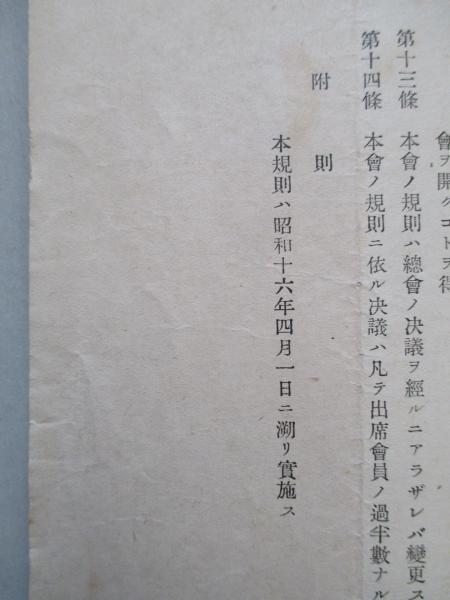 會ヲ開クコトヲ得
第十三條 本會ノ規則ハ總會ノ決議ヲ經ルニアラザレバ變更ス
第十四條 本會ノ規則ニ依ル決議ハ凡テ出席會員ノ過半數ナル
附則
本規則ハ昭和十六年四月一日ニ溯リ實施ス